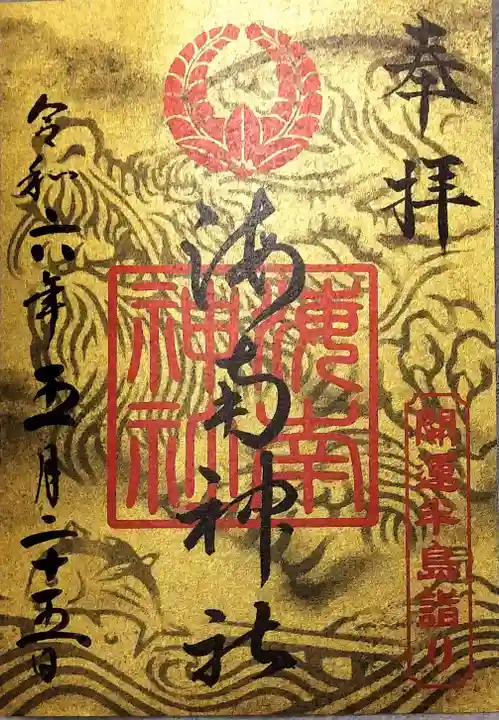 奉拝
開運半島詣り
海南神社
海南
神社
令和六年五月二十五日